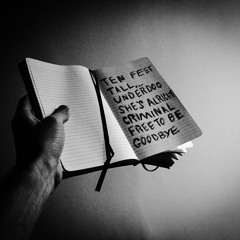 TEN FEET
TALL...
UNDERDOG
SHE'S ALRIGHT
CRIMINAL
FREE TO BE
GOODBYE